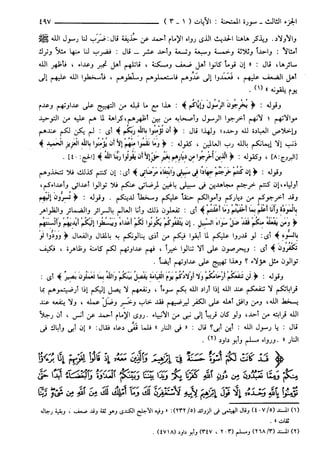 الجزء الثالث - سورة الممتحنة : الآيات ( ١ - ٣ ) ٤٩٧
والأولاد. ويذكر هاهنا الحديث الذي رواه الإمام أحمد عن حذيفة قال: ضرب لنا رسول الله ﷺ
أمثالاً : واحداً وثلاثة وخمسة وسبعة وتسعة وأحد عشر ــ قال : فضرب لنا منها مثلاً وترك
سائرها، قال : « إن قوماً كانوا أهل ضعف ومسكنة ، قاتلهم أهل تجبر وعداء، فأظهر الله
أهل الضعف عليهم ، فعمدوا إلى عدوهم فاستعملوهم وسلطوهم ، فأسخطوا الله عليهم إلى
يوم يلقونه » (١) .
وقوله : ﴿ يُخْرِجُونَ الرَّسُولَ وَإِيَّاكُمْ ﴾ : هذا مع ما قبله من التهييج على عداوتهم وعدم
موالاتهم ؛ لأنهم أخرجوا الرسول وأصحابه من بين أظهرهم، كراهة لما هم عليه من التوحيد
وإخلاص العبادة لله وحده؛ ولهذا قال : ﴿ أَن تُؤْمِنُوا بِاللَّهِ رَبِّكُمْ ﴾ أي : لم يكن لكم عندهم
ذنب إلا إيمانكم بالله رب العالمين ، كقوله : ﴿ وَمَا نَقَمُوا مِنْهُمْ إِلَّا أَن يُؤْمِنُوا بِاللَّهِ الْعَزِيزِ الْحَمِيدِ ﴾
[البروج: ٨] ، وكقوله : ﴿ الَّذِينَ أُخْرِجُوا مِن دِيَارِهِم بِغَيْرِ حَقٍّ إِلَّا أَن يَقُولُوا رَبُّنَا اللَّهُ ﴾ [الحج: ٤٠] .
وقوله : ﴿ إِن كُنتُمْ خَرَجْتُمْ جِهَادًا فِي سَبِيلِي وَابْتِغَاءَ مَرْضَاتِي ﴾ أي : إن كنتم كذلك فلا تتخذوهم
أولياء، إن كنتم خرجتم مجاهدين في سبيلي باغين لمرضاتي عنكم فلا توالوا أعدائي وأعداءكم،
وقد أخرجوكم من دياركم وأموالكم حنقاً عليكم وسخطاً لدينكم . وقوله : ﴿ تُسِرُّونَ إِلَيْهِم
بِالْمَوَدَّةِ وَأَنَا أَعْلَمُ بِمَا أَخْفَيْتُمْ وَمَا أَعْلَنتُمْ ﴾ أي : تفعلون ذلك وأنا العالم بالسرائر والضمائر والظواهر
﴿ وَمَن يَفْعَلْهُ مِنكُمْ فَقَدْ ضَلَّ سَوَاءَ السَّبِيلِ . إِن يَثْقَفُوكُمْ يَكُونُوا لَكُمْ أَعْدَاءً وَيَبْسُطُوا إِلَيْكُمْ أَيْدِيَهُمْ وَأَلْسِنَتَهُم
بِالسُّوءِ ﴾ أي : لو قدروا عليكم لما أبقوا فيكم من أذى ينالونكم به بالمقال والفعال ﴿ وَوَدُّوا لَوْ
تَكْفُرُونَ ﴾ أي : ويحرصون على ألا تنالوا خيراً ، فهم عداوتهم لكم كامنة وظاهرة ، فكيف
توالون مثل هؤلاء ؟ وهذا تهييج على عداوتهم أيضاً .
وقوله : ﴿ لَن تَنفَعَكُمْ أَرْحَامُكُمْ وَلَا أَوْلَادُكُمْ يَوْمَ الْقِيَامَةِ يَفْصِلُ بَيْنَكُمْ وَاللَّهُ بِمَا تَعْمَلُونَ بَصِيرٌ ﴾ أي :
قراباتكم لا تنفعكم عند الله إذا أراد الله بكم سوءاً ، ونفعهم لا يصل إليكم إذا أرضيتموهم بما
يسخط الله، ومن وافق أهله على الكفر ليرضيهم فقد خاب وخسر وضل عمله ، ولا ينفعه عند
الله قرابته من أحد، ولو كان قريباً إلى نبي من الأنبياء. روى الإمام أحمد عن أنس ، أن رجلاً
قال : يا رسول الله : أين أبي؟ قال : « في النار » فلما قفى دعاه فقال: « إن أبي وأباك في
النار » . ورواه مسلم وأبو داود (٢) .
﴿ قَدْ كَانَتْ لَكُمْ أُسْوَةٌ حَسَنَةٌ فِي إِبْرَاهِيمَ وَالَّذِينَ مَعَهُ إِذْ قَالُوا لِقَوْمِهِمْ إِنَّا بُرَآءُ
مِنكُمْ وَمِمَّا تَعْبُدُونَ مِن دُونِ اللَّهِ كَفَرْنَا بِكُمْ وَبَدَا بَيْنَنَا وَبَيْنَكُمُ الْعَدَاوَةُ وَالْبَغْضَاءُ أَبَدًا حَتَّى
(١) المسند (٤٠٧/٥) وقال الهيثمي في الزوائد (٢٣٢/٥): « وفيه الأجلح الكندي وهو ثقة وقد ضعف ، وبقية رجاله
ثقات » .
(٢) المسند (٢٦٨/٣) ومسلم (٢٠٣ ، ٣٤٧) وأبو داود (٤٧١٨) .